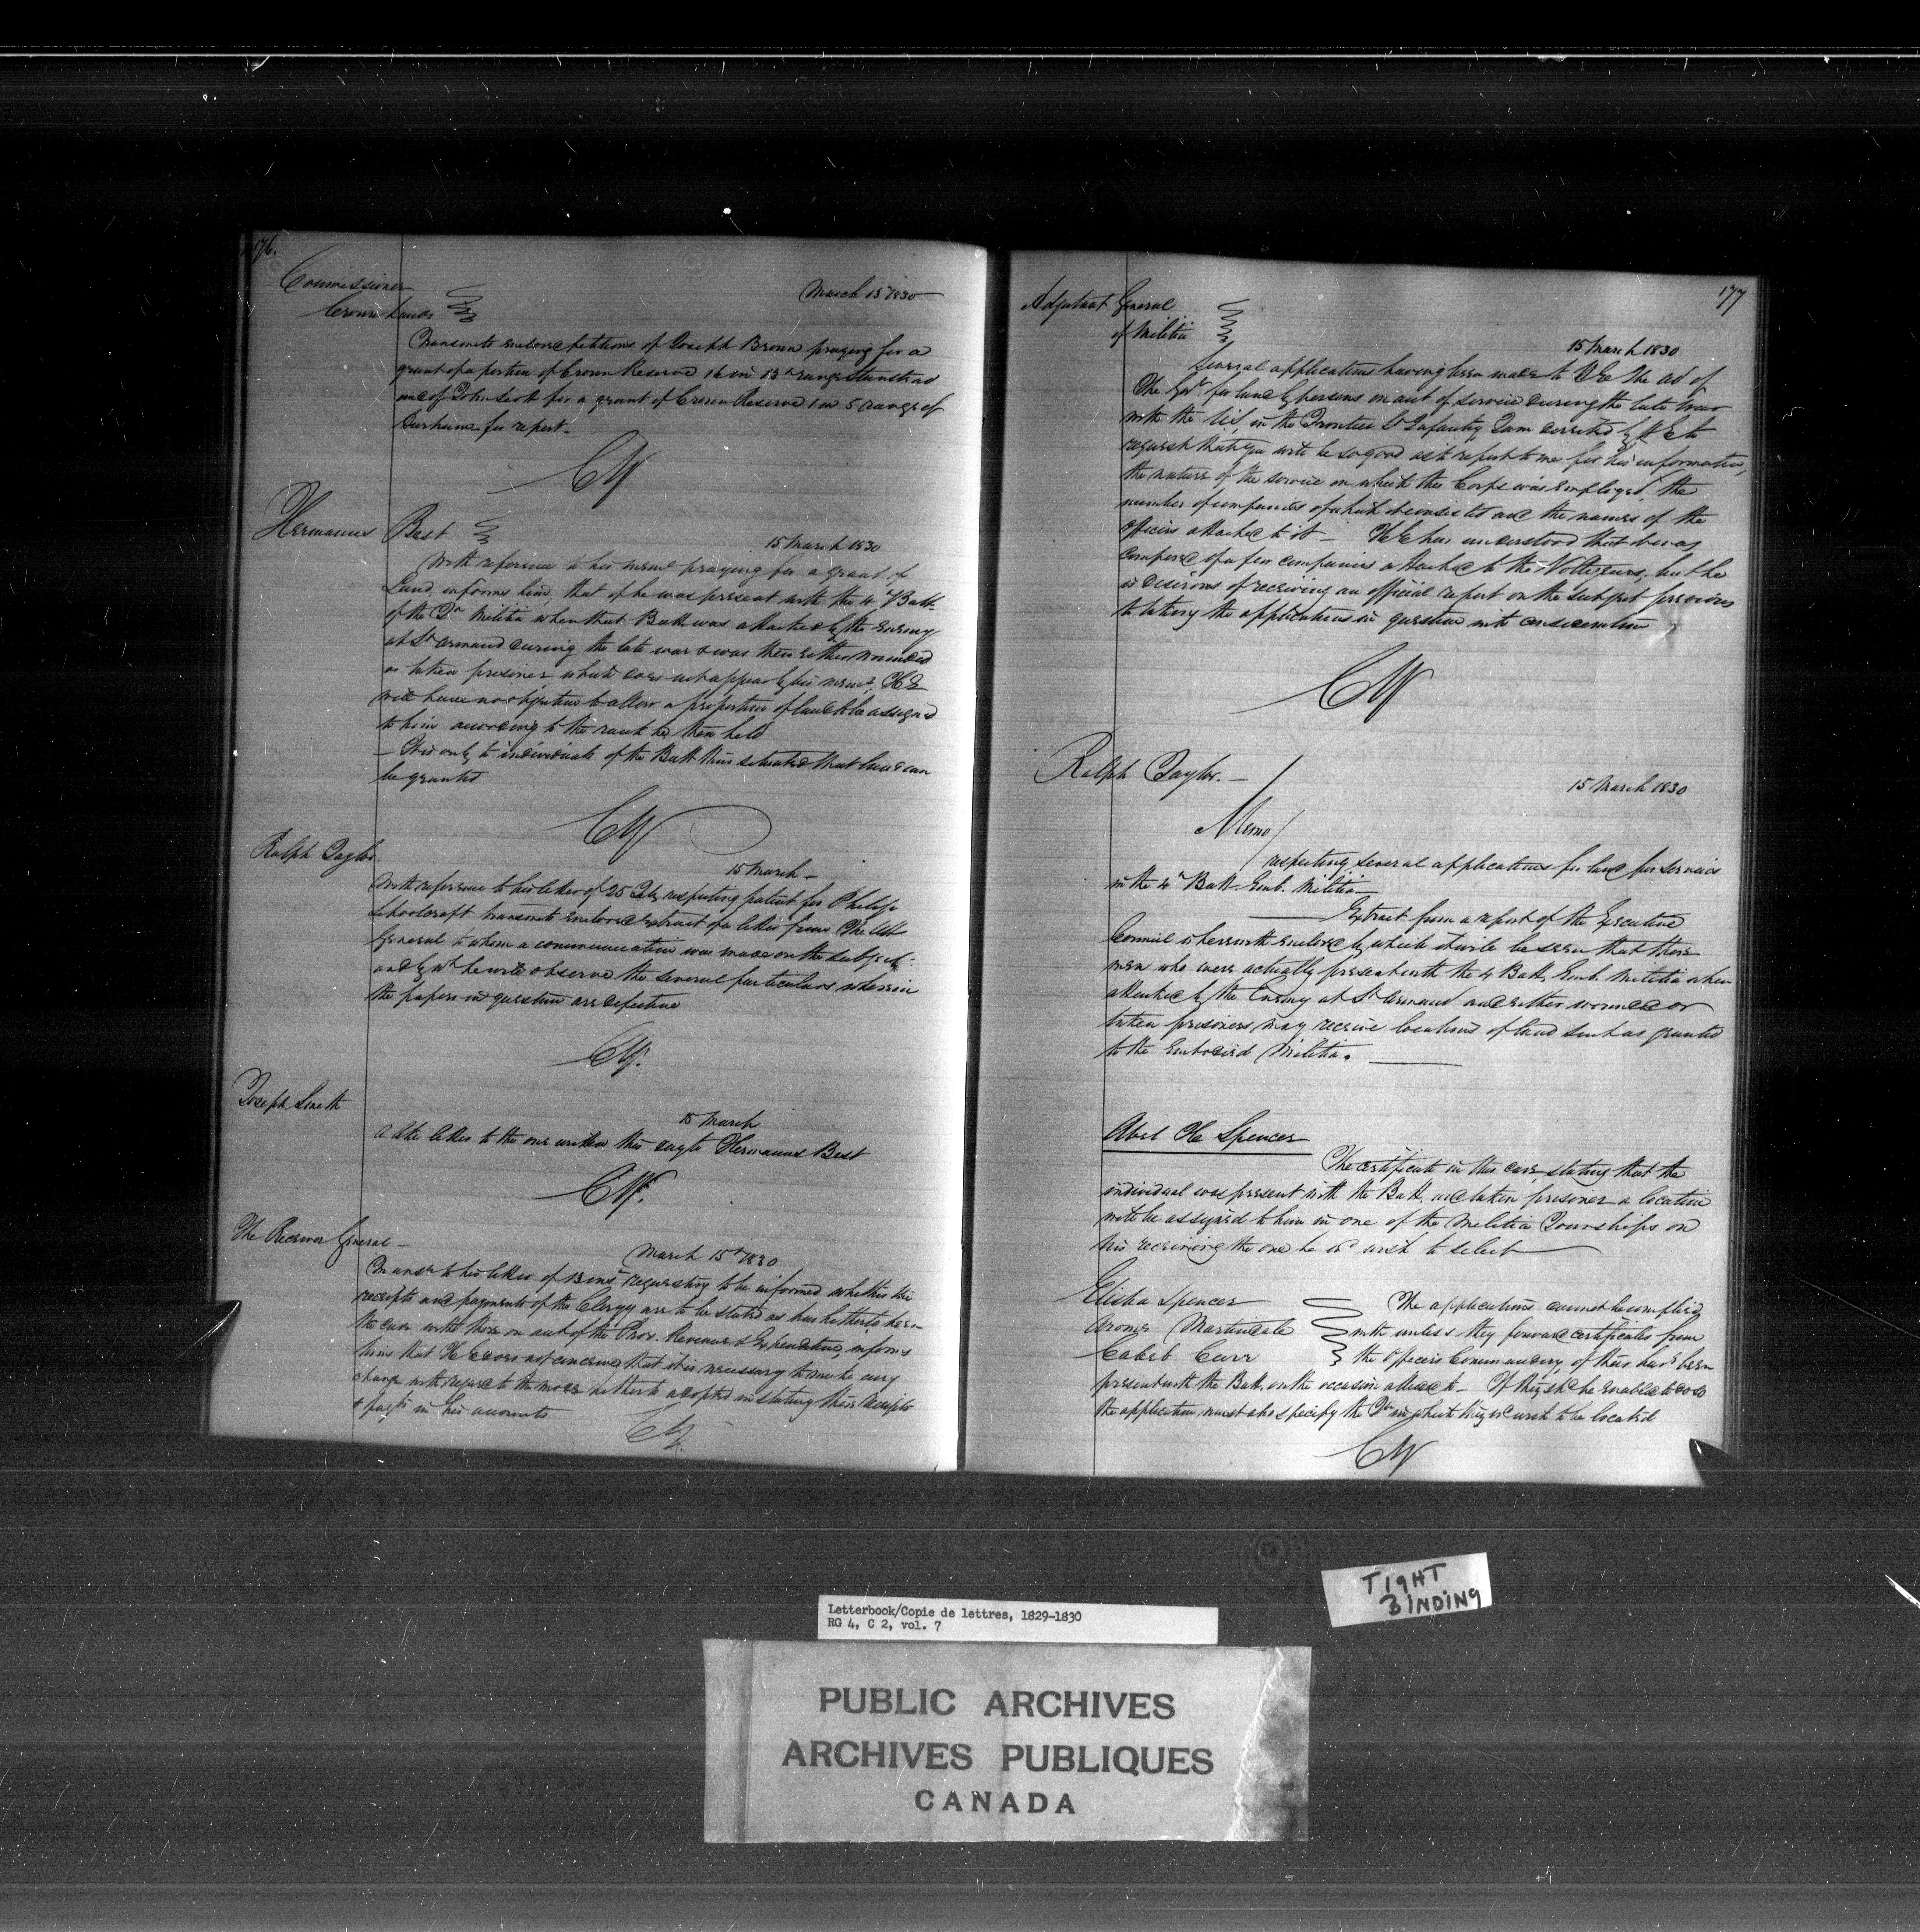 176.
Commissioner
Crown Lands
March 15 1830
Transmits enclosed petitions of Joseph Brown praying for a
grant of a portion of Crown Reserve 16 in 13th range Stanstead
and of John Scott for a grant of Crown Reserve 1 in 5 range of
Durham for report.
CY
Hermanus Best
15 March 1830
With reference to his meml praying for a grant of
Land, informs him, that if he was present with the 4th Batt.
of the Militia when that Batt was attacked by the Enemy
at St Armand during the late war & was then either wounded
or taken prisoner which does not appear by his meml, HE
will have no objection to allow a proportion of land to be assigned
to him according to the rank he then held
— It is only to individuals of the Batt thus situated that land can
be granted
CY
Ralph Taylor
15 March —
With reference to his letter of 25 respecting patent for Philip
Schoolcraft transmits enclosed extract of a letter from The Att
General to whom a communication was made on the subject.
and by wh he will observe the several particulars wherein
the papers in question are defective
CY.
Joseph Smith
15 March
A like letter to the one written this day to Hermanus Best
CY.
The Receiver General —
March 15th 1830
In ansr to his letter of 13 inst requesting to be informed whether the
receipts and payments of the Clergy are to be stated as has hitherto been
the case with those on acct of the Prov. Revenue & Expenditure, informs
him that HE does not conceive that it is necessary to make any
change with respect to the mode hitherto adopted in stating their Receipts
& paymts in his accounts
CY.
177
Adjutant General
of Militia
15 March 1830
Several applications having been made to HE The Ad of
The Govt for land by persons on acct of service during the late war
with the US, in the Frontier Lt Infantry I am directed by HE to
request that you will be so good as to report to me for his information,
the nature of the service on which the Corps was employed, the
number of companies of which it consisted and the names of the
Officers attached to it — HE has understood that it was
composed of a few companies attached to the Voltigeurs, but he
is desirous of receiving an official report on the subject previous
to taking the applications in question into consideration
CY
Ralph Taylor. —
15 March 1830
Memo/
respecting several applications for land for services
in the 4th Batt. Emb. Militia —
Extract from a report of the Executive
Council is herewith enclosed by which it will be seen that those
men who were actually present with the 4 Batt. Emb. Militia when
attacked by the Enemy at St Armand and either wounded or
taken prisoners may receive locations of land such as granted
to the Embodied Militia.
Abel H Spencer
The certificate in this case, stating that the
individual was present with the Batt. and taken prisoner a location
will be assigned to him in one of the Militia Townships on
his receiving the one he wd wish to select
Elisha Spencer
Martindale
Caleb Carr
The applications cannot be complied
with unless they forward certificates from
the Officers Commanding of their havg been
present with the Batt. on the occasion alluded to — If they shd be enabled to do so
the application must also specify the in which they wd wish to be located
CY
TIGHT
BINDING
Letterbook/Copie de lettres, 1829-1830
RG 4, C 2, vol. 7
PUBLIC ARCHIVES
ARCHIVES PUBLIQUES
CANADA